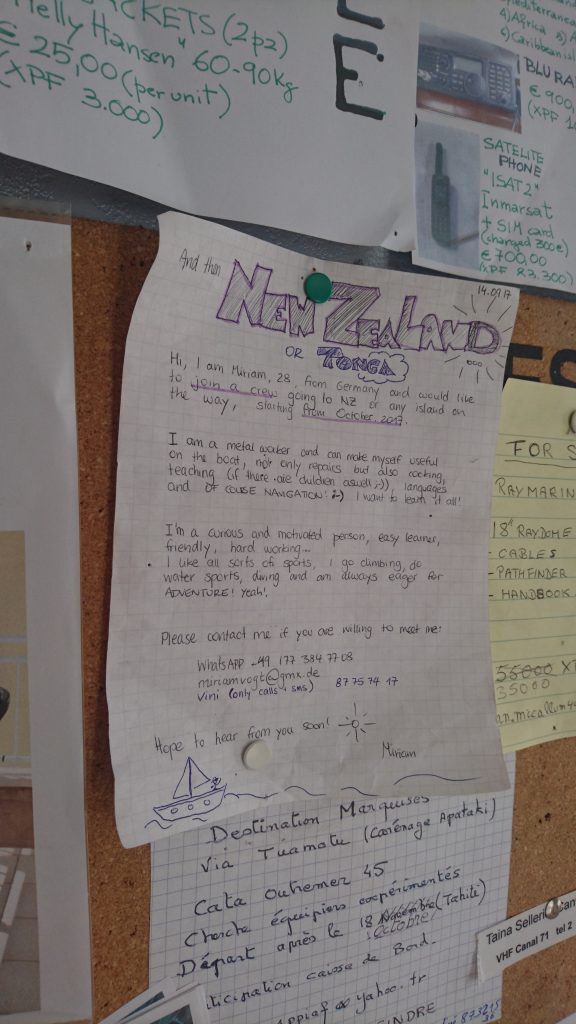 JACKETS (2pz)
"Helly Hansen" 60-90kg
€ 25,00 (per unit)
(XPF 3.000)
E
4) Africa
6) Caribbean
€ 900,
SATELITE
PHONE
"ISAT2"
Inmarsat
+ SIM card
(charged 300€)
€ 700,00
(XPF 83.300)
14.09.17
And then
NEW ZEALAND
OR TONGA
Hi, I am Miriam, 28, from Germany and would like
to join a crew going to NZ or any island on
the way, starting from October, 2017.
I am a metal worker and can make myself useful
on the boat, not only repairs but also cooking,
teaching (if there are children aswell ;-)), languages
and OF COURSE NAVIGATION! ;-) I want to learn it all!
I'm a curious and motivated person, easy learner,
friendly, hard working...
I like all sorts of sports, I go climbing, do
water sports, diving and am always eager for
ADVENTURE! Yeah!
Please contact me if you are willing to meet me:
WhatsAPP +49 177 384 77 08
miriamvogt@gmx.de
Vini (only calls + sms) 87 75 74 17
Hope to hear from you soon!
Miriam
FOR S
RAYMARIN
18" RAYDOME
- CABLES
- PATHFINDER
- HANDBOOK
55000 XP
35000
Destination Marquises
Via Tuamotu (Carénage Apataki)
Cata Outremer 45
Cherche équipiers expérimentés
Départ après le 18 Octobre (Tahiti)
Participation caisse de Bord.
@yahoo.fr
Taina Sellerie
VHF Canal 71 tel